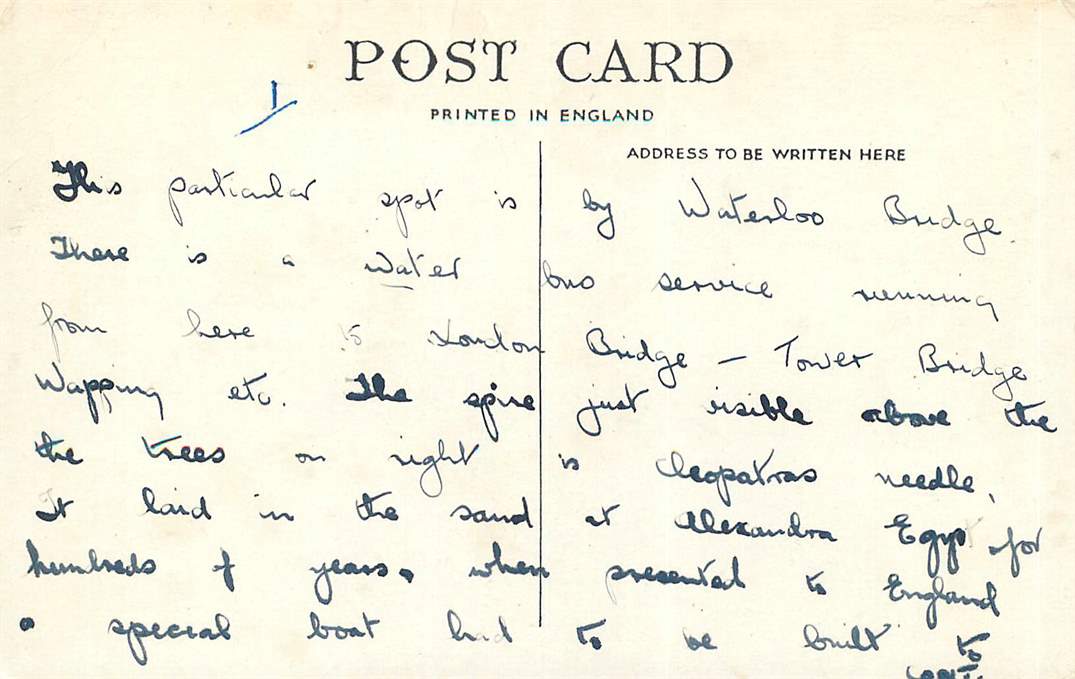 POST CARD
PRINTED IN ENGLAND
1
ADDRESS TO BE WRITTEN HERE
This particular spot is by Waterloo Bridge.
There is a water bus service running
from here to London Bridge – Tower Bridge
Wapping etc. The spire just visible above the
the trees on right is Cleopatras needle,
It laid in the sand at Alexandra Egypt for
hundreds of years. when presented to England
a special boat had to be built to